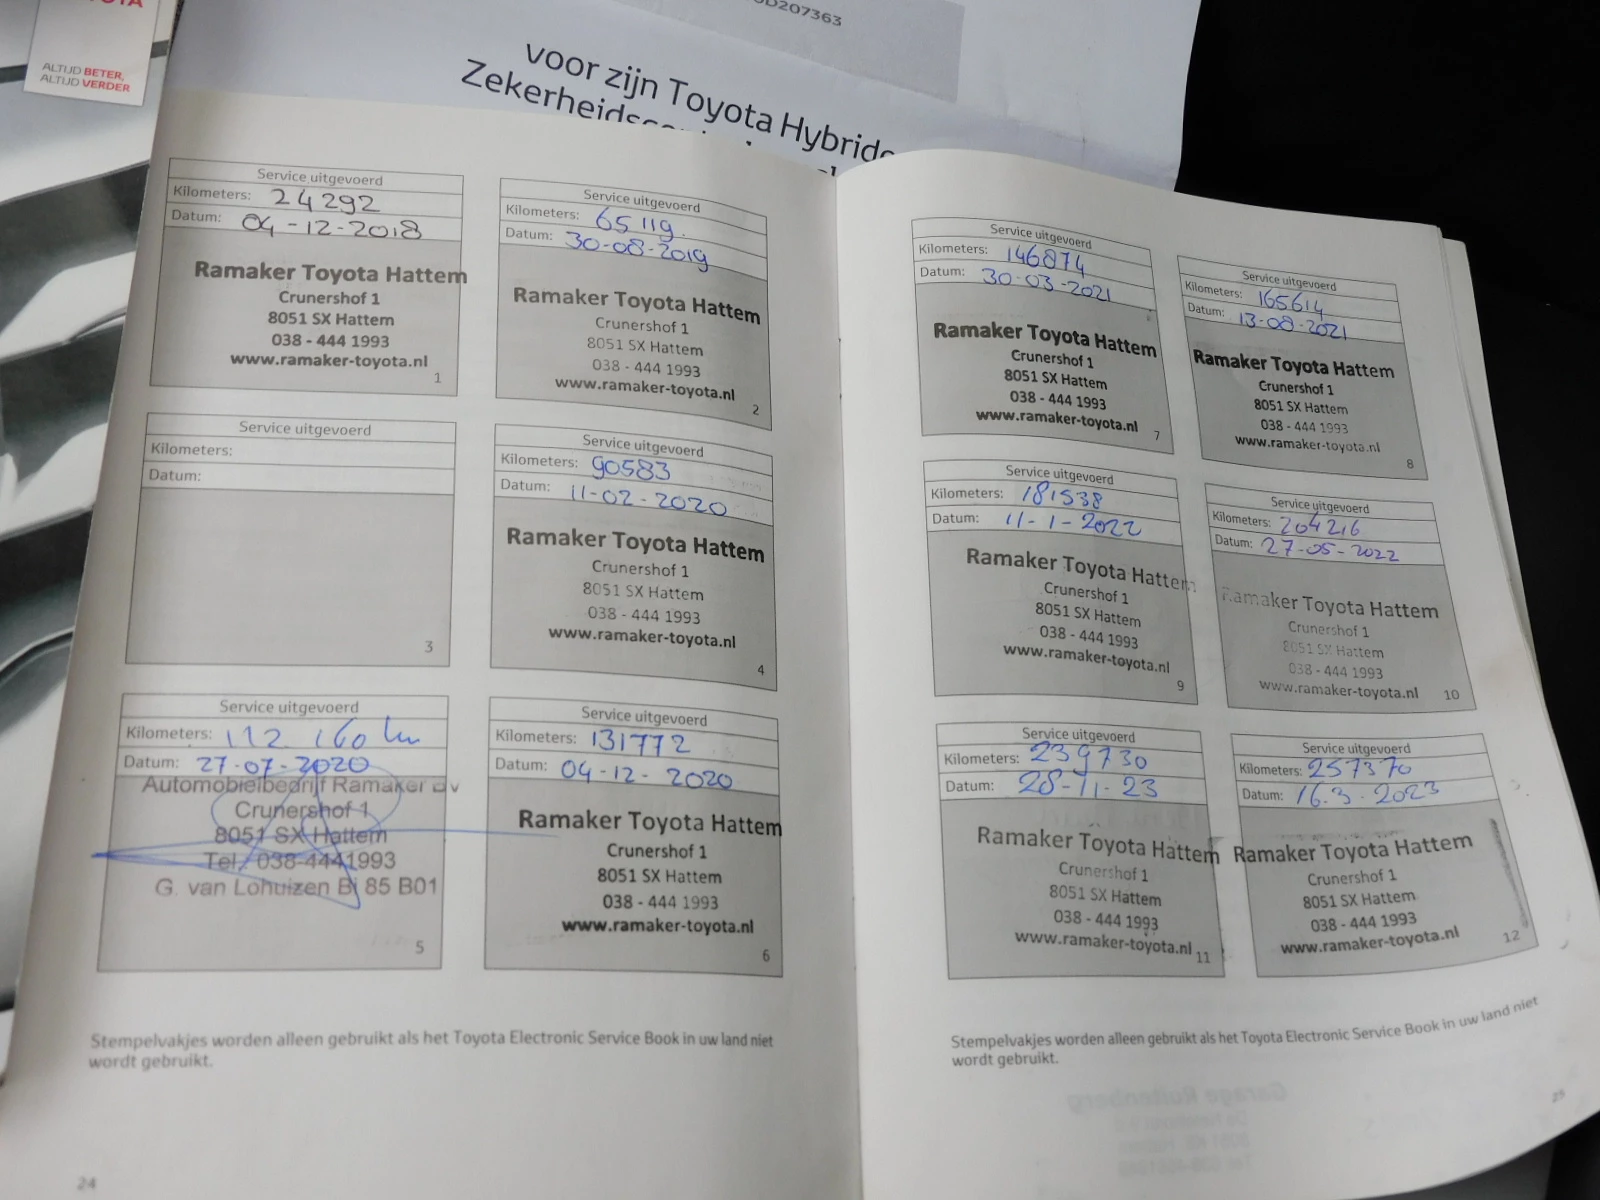 ALTIJD BETER,
ALTIJD VERDER
D207363
voor zijn Toyota Hybride
Service uitgevoerd
Kilometers: 24292
Datum: 04-12-2018
Ramaker Toyota Hattem
Crunershof 1
8051 SX Hattem
038 - 444 1993
www.ramaker-toyota.nl
1
Service uitgevoerd
Kilometers: 65119.
Datum: 30-08-2019
Ramaker Toyota Hattem
Crunershof 1
8051 SX Hattem
038 - 444 1993
www.ramaker-toyota.nl
2
Service uitgevoerd
Kilometers:
Datum:
3
Service uitgevoerd
Kilometers: 90583
Datum: 11-02-2020
Ramaker Toyota Hattem
Crunershof 1
8051 SX Hattem
038 - 444 1993
www.ramaker-toyota.nl
4
Service uitgevoerd
Kilometers: 112 160 km
Datum: 27-07-2020
Automobielbedrijf Ramaker BV
Crunershof 1
8051 SX Hattem
Tel. 038-4441993
G. van Lohuizen Bj 85 B01
5
Service uitgevoerd
Kilometers: 131772
Datum: 04-12-2020
Ramaker Toyota Hattem
Crunershof 1
8051 SX Hattem
038 - 444 1993
www.ramaker-toyota.nl
6
Stempelvakjes worden alleen gebruikt als het Toyota Electronic Service Book in uw land niet
wordt gebruikt.
24
Service uitgevoerd
Kilometers: 146874
Datum: 30-03-2021
Ramaker Toyota Hattem
Crunershof 1
8051 SX Hattem
038 - 444 1993
www.ramaker-toyota.nl
7
Service uitgevoerd
Kilometers: 165614
Datum: 13-08-2021
Ramaker Toyota Hattem
Crunershof 1
8051 SX Hattem
038 - 444 1993
www.ramaker-toyota.nl
8
Service uitgevoerd
Kilometers: 181538
Datum: 11-1-2022
Ramaker Toyota Hattem
Crunershof 1
8051 SX Hattem
038 - 444 1993
www.ramaker-toyota.nl
9
Service uitgevoerd
Kilometers: 204216
Datum: 27-05-2022
Ramaker Toyota Hattem
Crunershof 1
8051 SX Hattem
038 - 444 1993
www.ramaker-toyota.nl
10
Service uitgevoerd
Kilometers: 239730
Datum: 28-11-23
Ramaker Toyota Hattem
Crunershof 1
8051 SX Hattem
038 - 444 1993
www.ramaker-toyota.nl
11
Service uitgevoerd
Kilometers: 257370
Datum: 16.3.2023
Ramaker Toyota Hattem
Crunershof 1
8051 SX Hattem
038 - 444 1993
www.ramaker-toyota.nl
12
Stempelvakjes worden alleen gebruikt als het Toyota Electronic Service Book in uw land niet
wordt gebruikt.
25